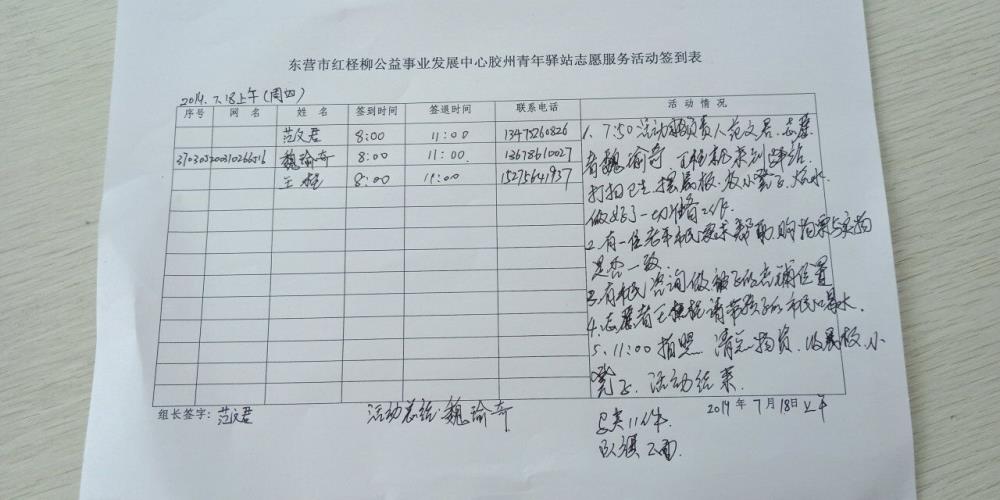 东营市红柽柳公益事业发展中心胶州青年驿站志愿服务活动签到表
2019.7.18上午(周四)
序号 网 名 姓 名 签到时间 签退时间 联系电话 活 动 情 况
范文君 8:00 11:00 13475260826
魏瑜奇 8:00 11:00 13678610027
王 8:00 11:00 15275641937
1、7:50活动负责人范文君、志愿
者魏瑜奇 来到驿站.
打扫卫生.摆展板.放小凳子.烧水.
做好了一切准备工作.
2.有一位老年市民要求帮助 与实物
是否一致.
3.有市民咨询做被子的店铺位置
4.志愿者王 请带孩子的市民喝水.
5、11:00拍照 清点物资.收展板.小
凳子.活动结束.
组长签字:范文君 活动总结:魏瑜奇 2019年7月18日上午
马夹11件.
队旗2面.